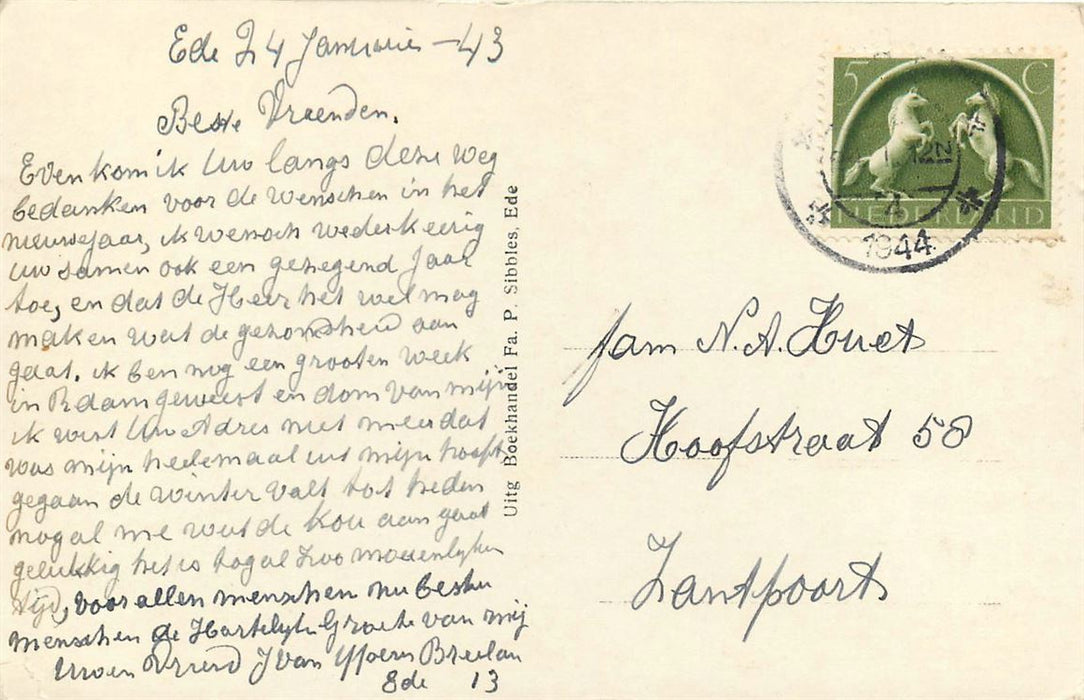 Ede 24 Januarie -43
Beste Vrienden.
Even kom ik Uw langs deze weg
bedanken voor de wenschen in het
nieuwejaar, ik wensch wederkeerig
uw samen ook een gezegend Jaar
toe, en dat de Heer het wel mag
maken wat de gezondheid aan
gaat. ik ben nog een grooten week
in Rdam geweest en dom van mijn
ik wist Uw Adres niet meer dat
was mijn heelemaal uit mijn hooft
gegaan de winter valt tot heden
nogal me wat de kou aan gaat
gelukkig het is togal zoo moeienlyken
tijd, voor allen menschen nu beste
menschen de Hartelyke Groete van mij
Uwen Vriend J van
Ede 13
Uitg Boekhandel Fa. P. Sibbles, Ede
5 C
NEDERLAND
12N
1944
fam N.A. Huet
Hoofstraat 58
Zantpoort